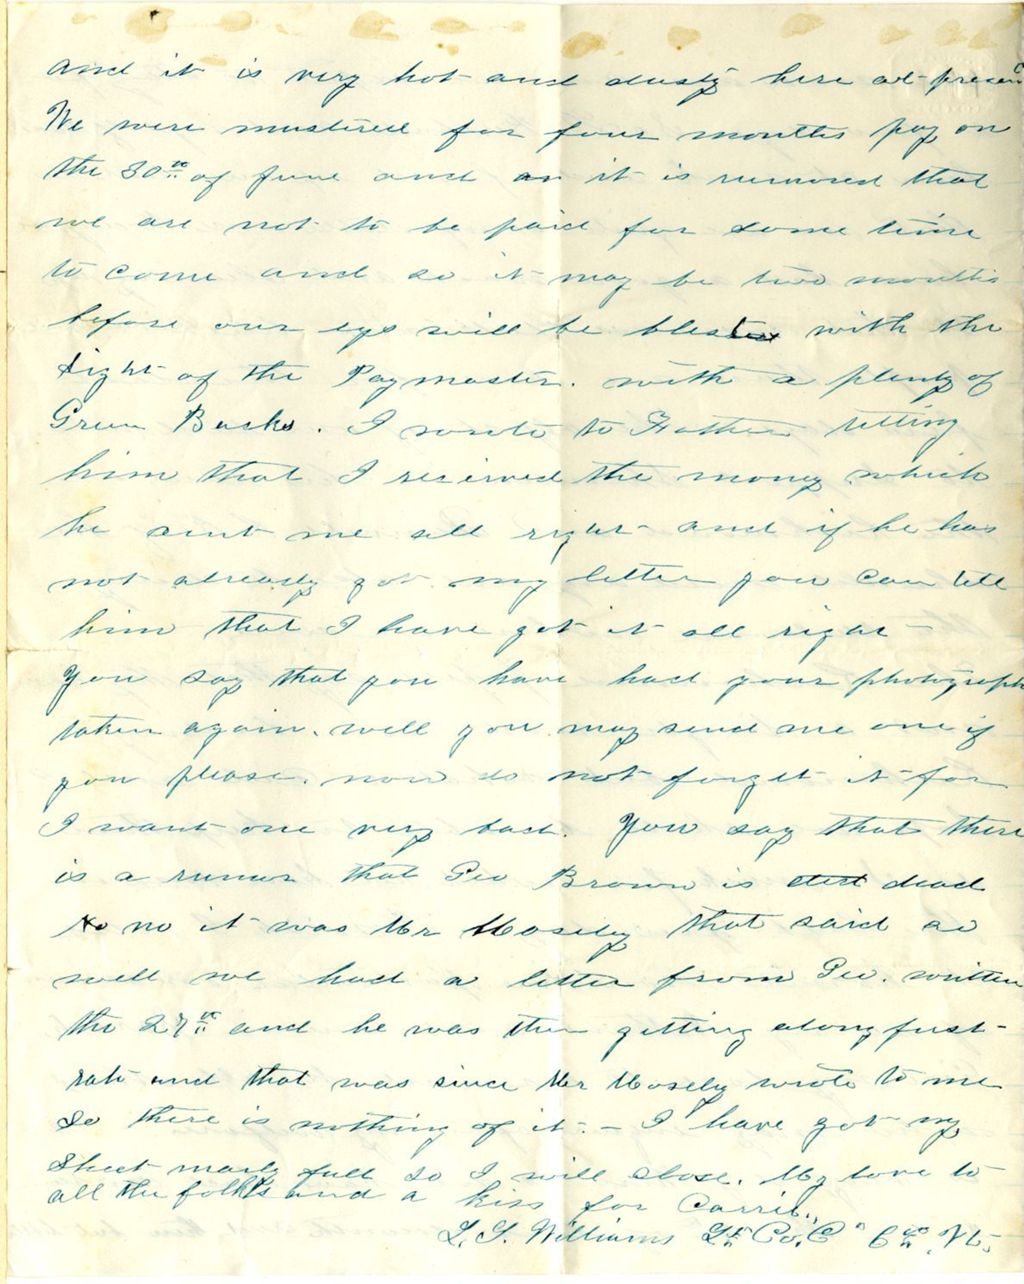 and it is very hot and dusty here at present
We were mustered for four months pay on
the 30th of June and as it is rumored that
we are not to be paid for some time
to come and so it may be two months
before our eys will be blest with the
sight of the Paymaster. with a plenty of
Green Backs. I wrote to Father telling
him that I received the money which
he sent me all right and if he has
not already got my letter you can tell
him that I have got it all right -
You say that you have had your photograph
taken again. well you may send me one if
you please. now do not forget it for
I want one very bad. You say that there
is a rumor that Geo Brown is dead
no it was Mr Mosely that said so
well we had a letter from Geo. written
the 27th and he was then getting along first-
rate and that was since Mr Mosely wrote to me
So there is nothing of it. - I have got my
sheet nearly full so I will close. My love to
all the folks and a kiss for Carrie.
L. S. Williams Lt Co. C 6th Vt.